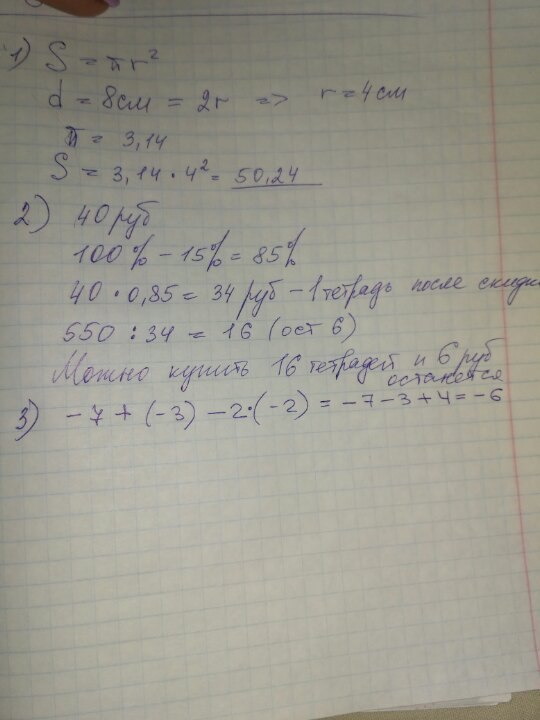 1) S = πr²
d = 8см = 2r => r = 4см
π = 3,14
S = 3,14 · 4² = 50,24
2) 40 руб
100% - 15% = 85%
40 · 0,85 = 34 руб - 1 тетрадь после скидки
550 : 34 = 16 (ост 6)
Можно купить 16 тетрадей и 6 руб
останется
3) -7 + (-3) -2·(-2) = -7 -3 +4 = -6